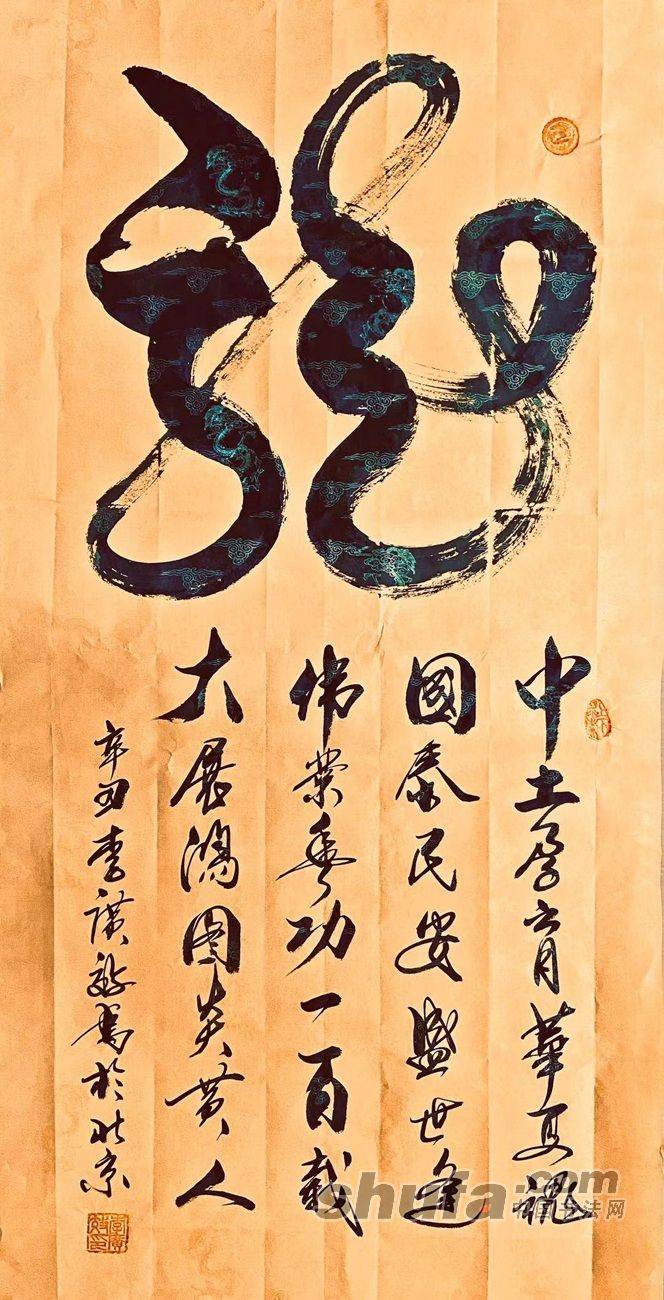 龍
中土孕育華夏魂
國泰民安盛世逢
偉業垂功一百載
大展鴻图炎黄人
辛丑李廣書於北京
shufa.com
中国书法网